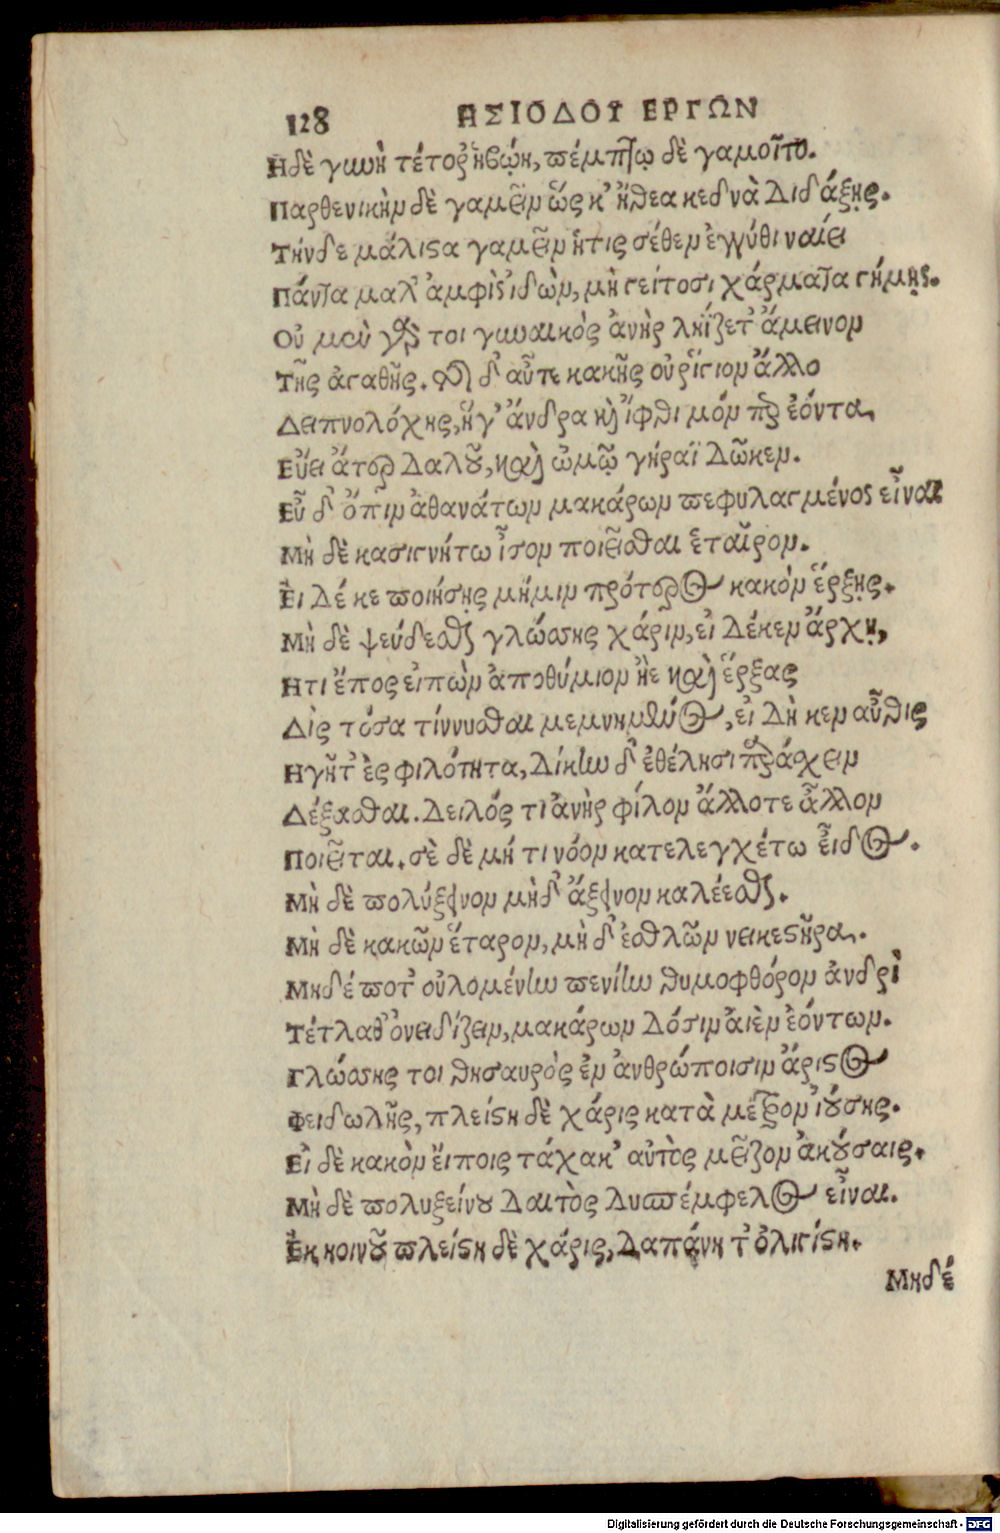 128 ΗΣΙΟΔΟΥ ΕΡΓΩΝ
Ηδὲ γυνὴ τέτορ ἡβῴη, πέμπτῳ δὲ γαμοῖτο.
Παρθενικὴν δὲ γαμεῖν ὥς κ' ἤθεα κεδνὰ διδάξῃς.
Τήνδε μάλιστα γαμεῖν ἥτις σέθεν ἐγγύθι ναίει
Πάντα μαλ' ἀμφὶς ἰδὼν, μὴ γείτοσι χάρματα γήμῃς.
Οὐ μὲν γάρ τοι γυναικὸς ἀνὴρ ληΐζετ' ἄμεινον
Τῆς ἀγαθῆς. τῆς δ' αὖτε κακῆς οὐ ῥίγιον ἄλλο
Δειπνολόχης, ἥγ' ἄνδρα καὶ ἴφθιμόν περ ἐόντα,
Εὔει ἄτερ δαλοῦ, καὶ ὠμῷ γήραϊ δῶκεν.
Εὖ δ' ὄπιν ἀθανάτων μακάρων πεφυλαγμένος εἶναι
Μὴ δὲ κασιγνήτω ἶσον ποιεῖσθαι ἑταῖρον.
Εἰ δέ κε ποιήσῃς μήμιν πρότερος κακὸν ἕρξῃς.
Μὴ δὲ ψεύδεσθαι γλώσσης χάριν, εἰ δέκεν ἄρχῃ,
Ητι ἔπος εἰπὼν ἀποθύμιον ἠὲ καὶ ἕρξας
Δὶς τόσα τίννυσθαι μεμνημένος, εἰ δὴ κεν αὖθις
Ηγῆτ' ἐς φιλότητα, δίκην δ' ἐθέλησι παράσχειν
Δέξασθαι. δειλός τι ἀνὴρ φίλον ἄλλοτε ἄλλον
Ποιεῖται. σὲ δὲ μή τι νόον κατελεγχέτω εἶδος.
Μὴ δὲ πολύξεινον μὴ δ' ἄξεινον καλέεσθαι.
Μὴ δὲ κακῶν ἕταρον, μὴ δ' ἐσθλῶν νεικεστῆρα.
Μηδέ ποτ' οὐλομένην πενίην θυμοφθόρον ἀνδρὶ
Τέτλαθ' ὀνειδίζειν, μακάρων δόσιν αἰὲν ἐόντων.
Γλώσσης τοι θησαυρὸς ἐν ἀνθρώποισιν ἄριστος
Φειδωλῆς, πλείστη δὲ χάρις κατὰ μέτρον ἰούσης.
Εἰ δὲ κακὸν εἴποις τάχακ' αὐτὸς μεῖζον ἀκούσαις.
Μὴ δὲ πολυξείνου δαιτὸς δυσπέμφελος εἶναι.
Ἐκ κοινοῦ πλείστη δὲ χάρις, δαπάνη τ' ὀλιγίστη.
Μηδέ
Digitalisierung gefördert durch die Deutsche Forschungsgemeinschaft - DFG